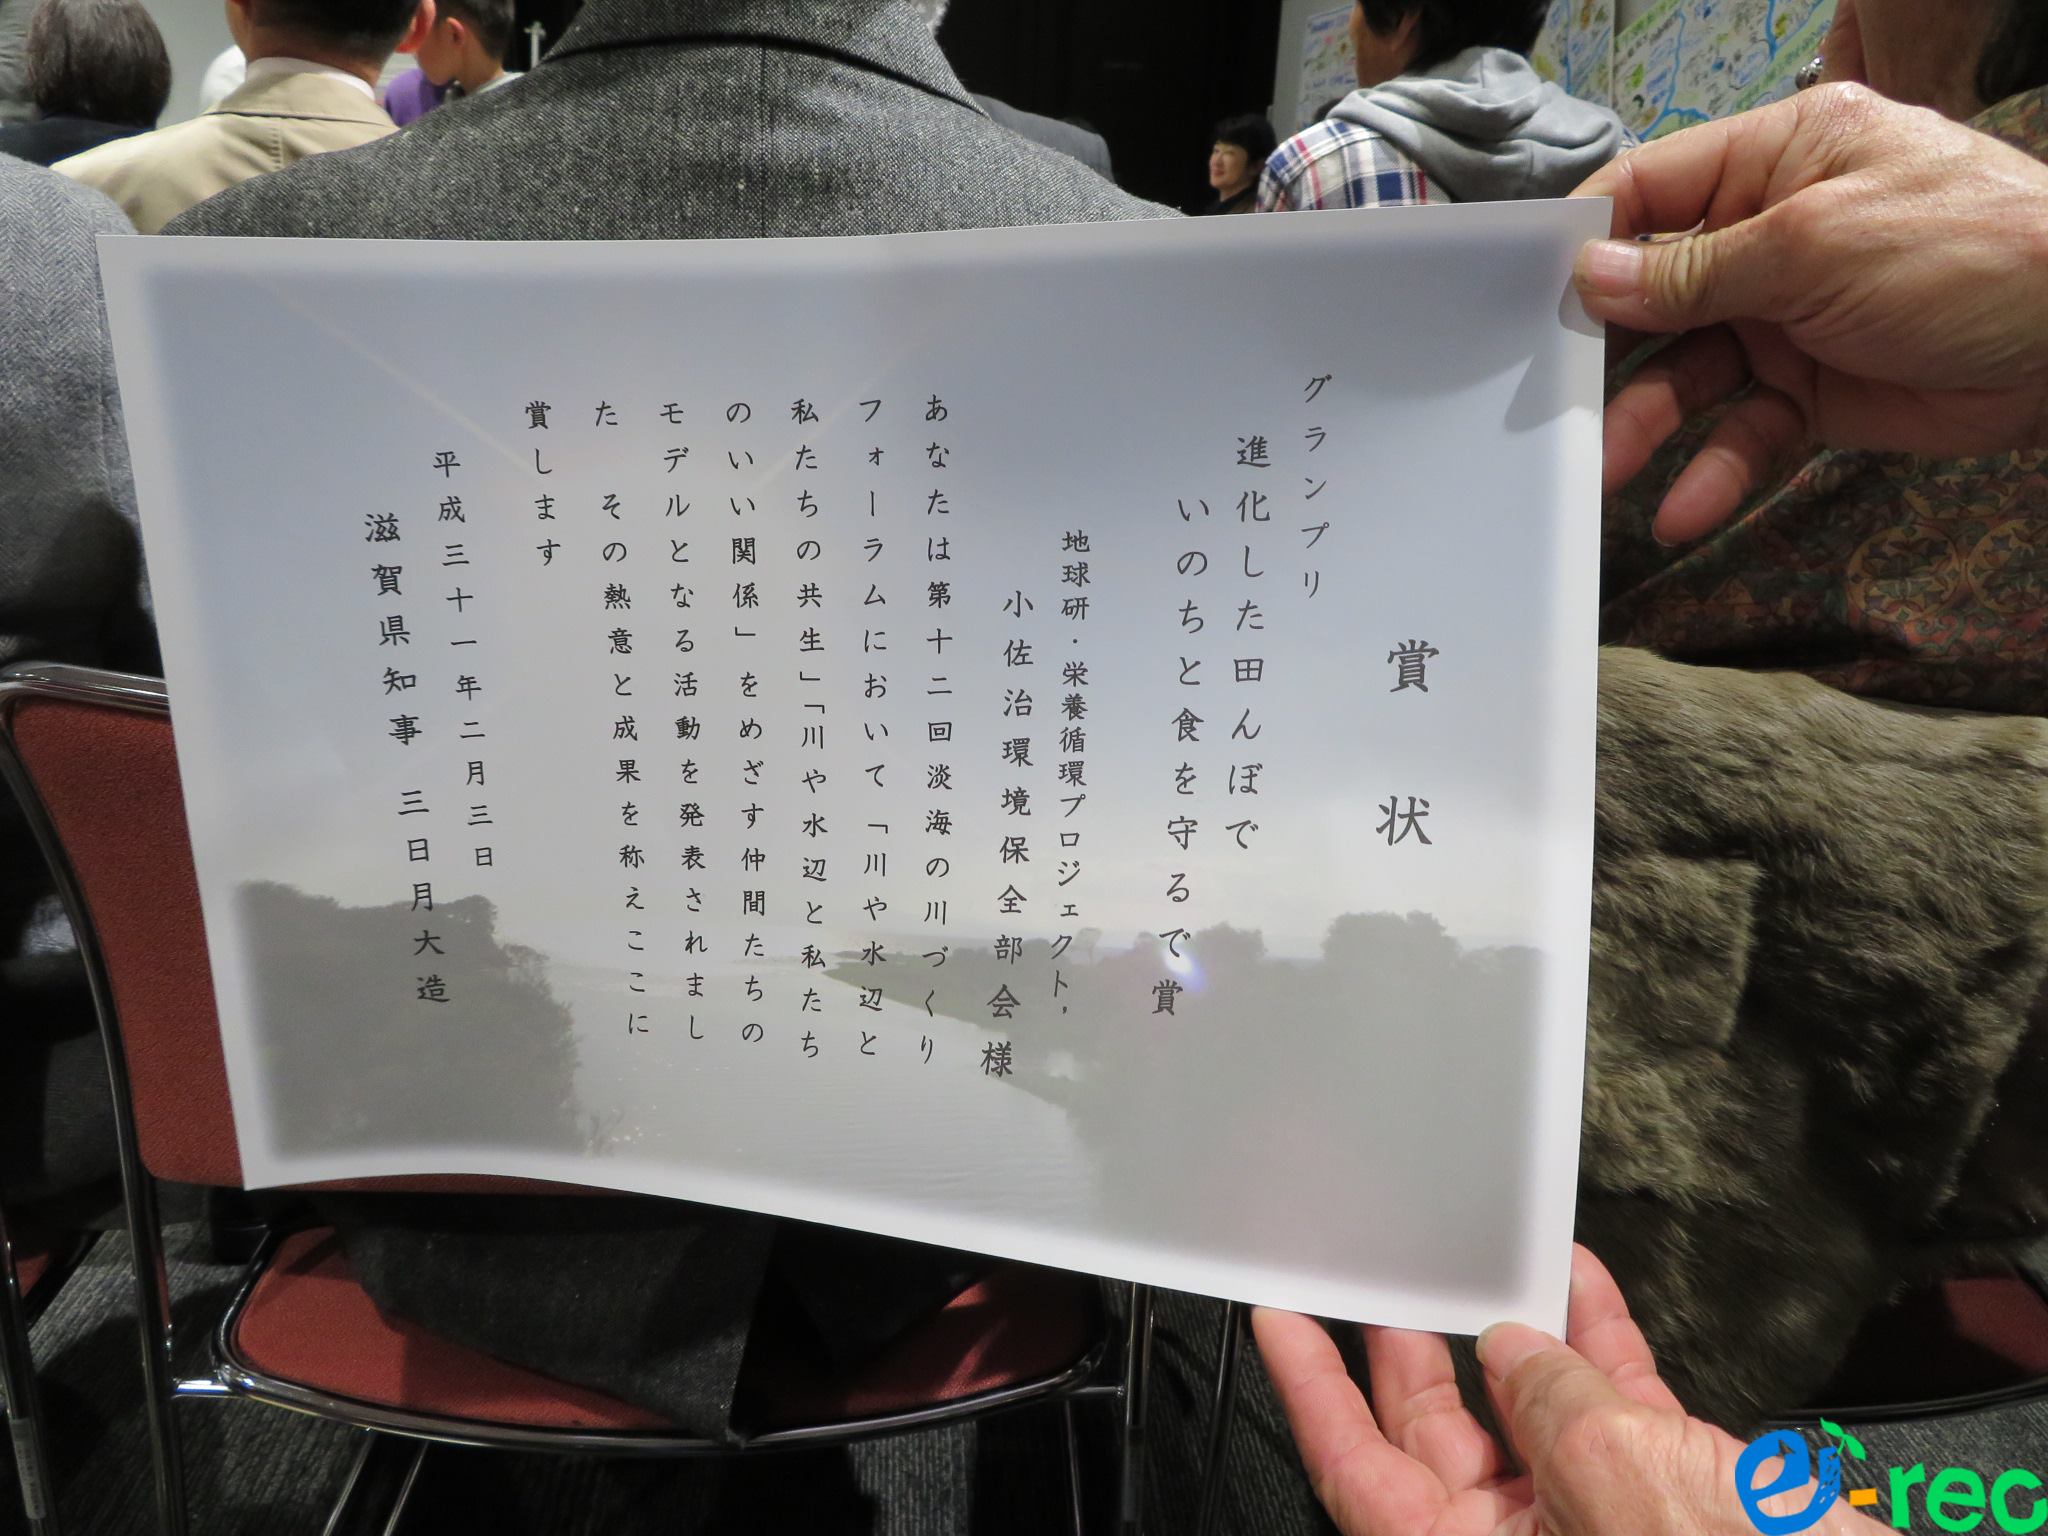 賞状
グランプリ
進化した田んぼで
いのちと食を守るで賞
地球研・栄養循環プロジェクト，
小佐治環境保全部会様
あなたは第十二回淡海の川づくり
フォーラムにおいて「川や水辺と
私たちの共生」「川や水辺と私たち
のいい関係」をめざす仲間たちの
モデルとなる活動を発表されまし
た　その熱意と成果を称えここに
賞します
平成三十一年二月三日
滋賀県知事　三日月大造
e-rec